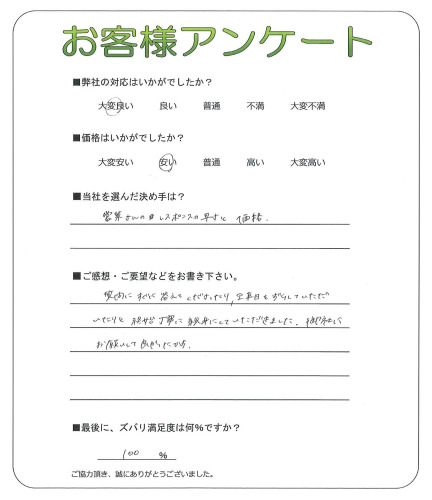 お客様アンケート
■弊社の対応はいかがでしたか？
大変良い 良い 普通 不満 大変不満
■価格はいかがでしたか？
大変安い 安い 普通 高い 大変高い
■当社を選んだ決め手は？
営業さんの レスポンスの早さと 価格.
■ご感想・ご要望などをお書き下さい。
すぐに 答えてくださったり, 工事日をずらしていただ
いたりと 丁寧に していただきました.
お願いして良かったです.
■最後に、ズバリ満足度は何％ですか？
100 ％
ご協力頂き、誠にありがとうございました。